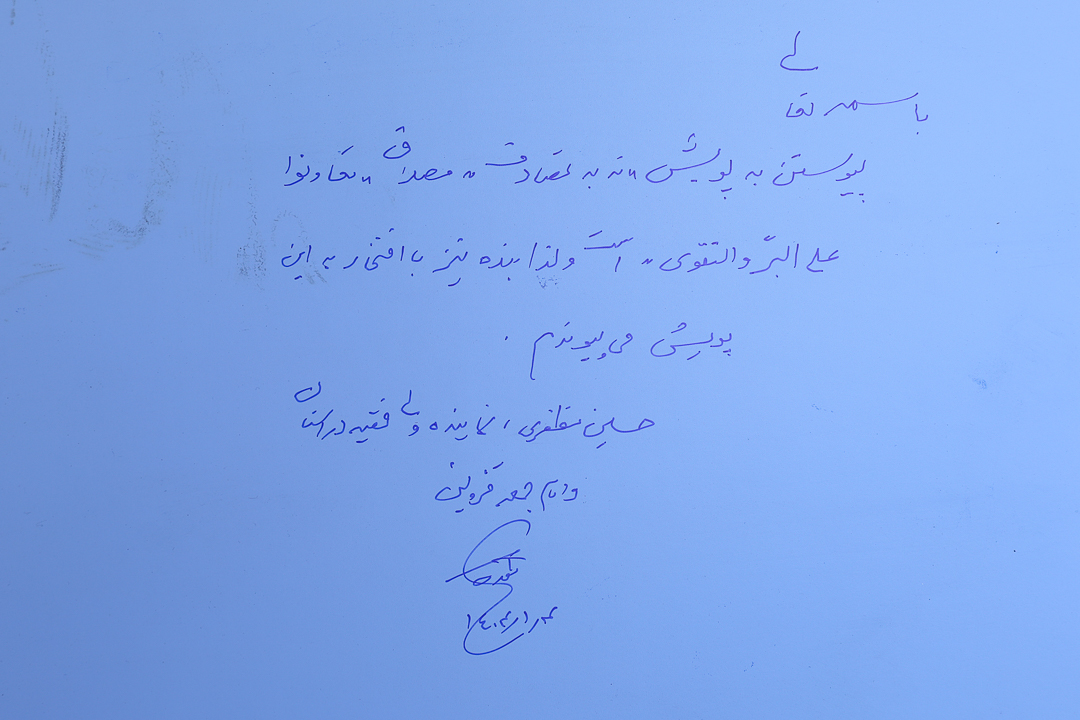 باسمه تعالی
پیوستن به پویش «نه به تصادف» مصداق «تعاونوا
علی البرّ والتقوی» است ولذا بنده نیز با افتخار به این
پویش می‌پیوندم .
حسین مظفری، نماینده ولی فقیه در استان
وامام جمعه قزوین